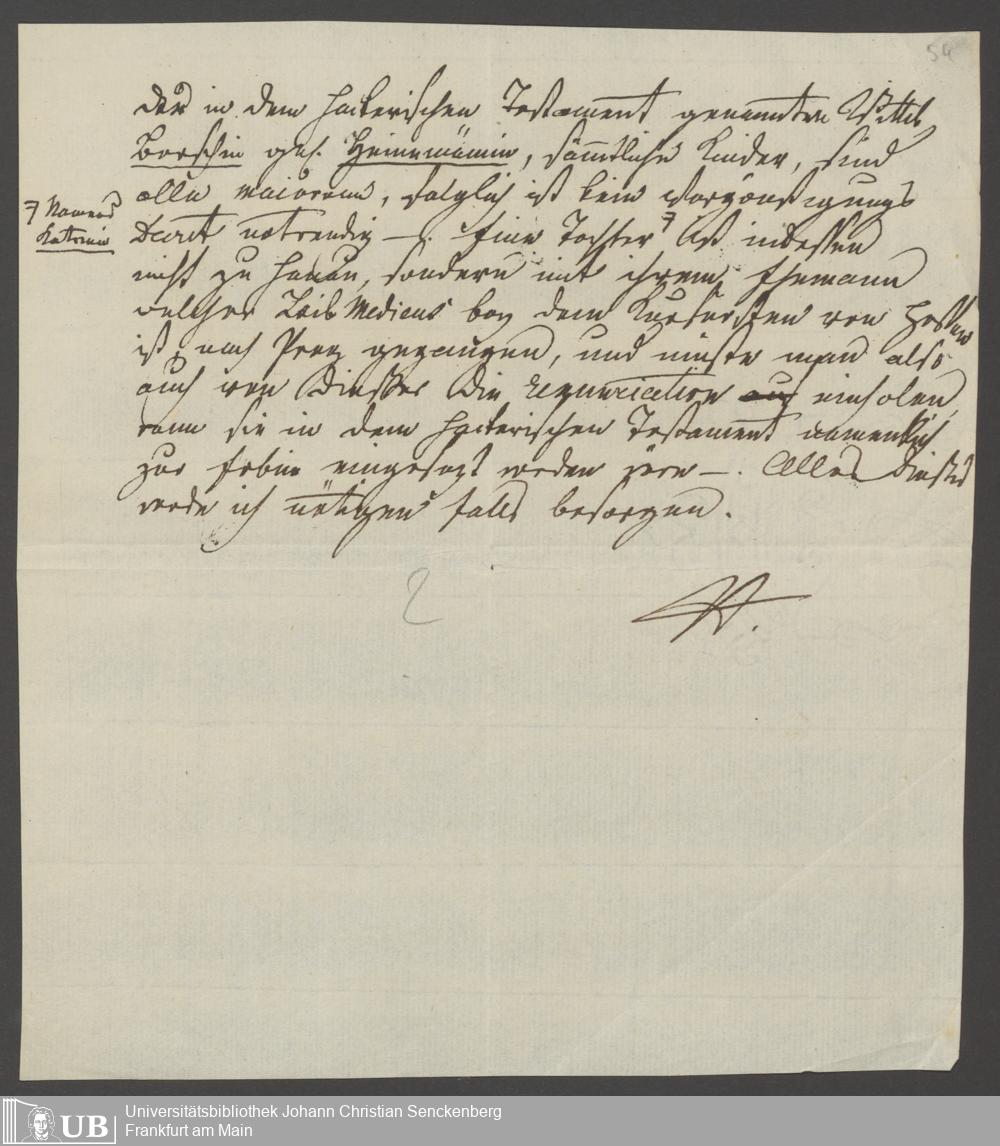 54
Der in dem Hackerischen Testament genannten Wittib
Borschin geb. Heinemännin, sämmtliche Kinder, sind
alle maiorenn, folglich ist kein Vergönstigungs
Decret notwendig —. Eine Tochter ⁊ ist indessen
⁊ Namens
Katrein
nicht zu Hanau, sondern mit ihrem Ehemann
welcher Leib Medicus bey dem Kurfürsten von Hessen
ist, nach Prag gegangen, und müste man also
auch von dieser die renunciation einholen,
wenn sie in dem Hackerischen Testament namentlich
zur Erbin eingesezt worden wäre —. Alles dieses
werde ich nötigen falls besorgen.
2
UB
Universitätsbibliothek Johann Christian Senckenberg
Frankfurt am Main